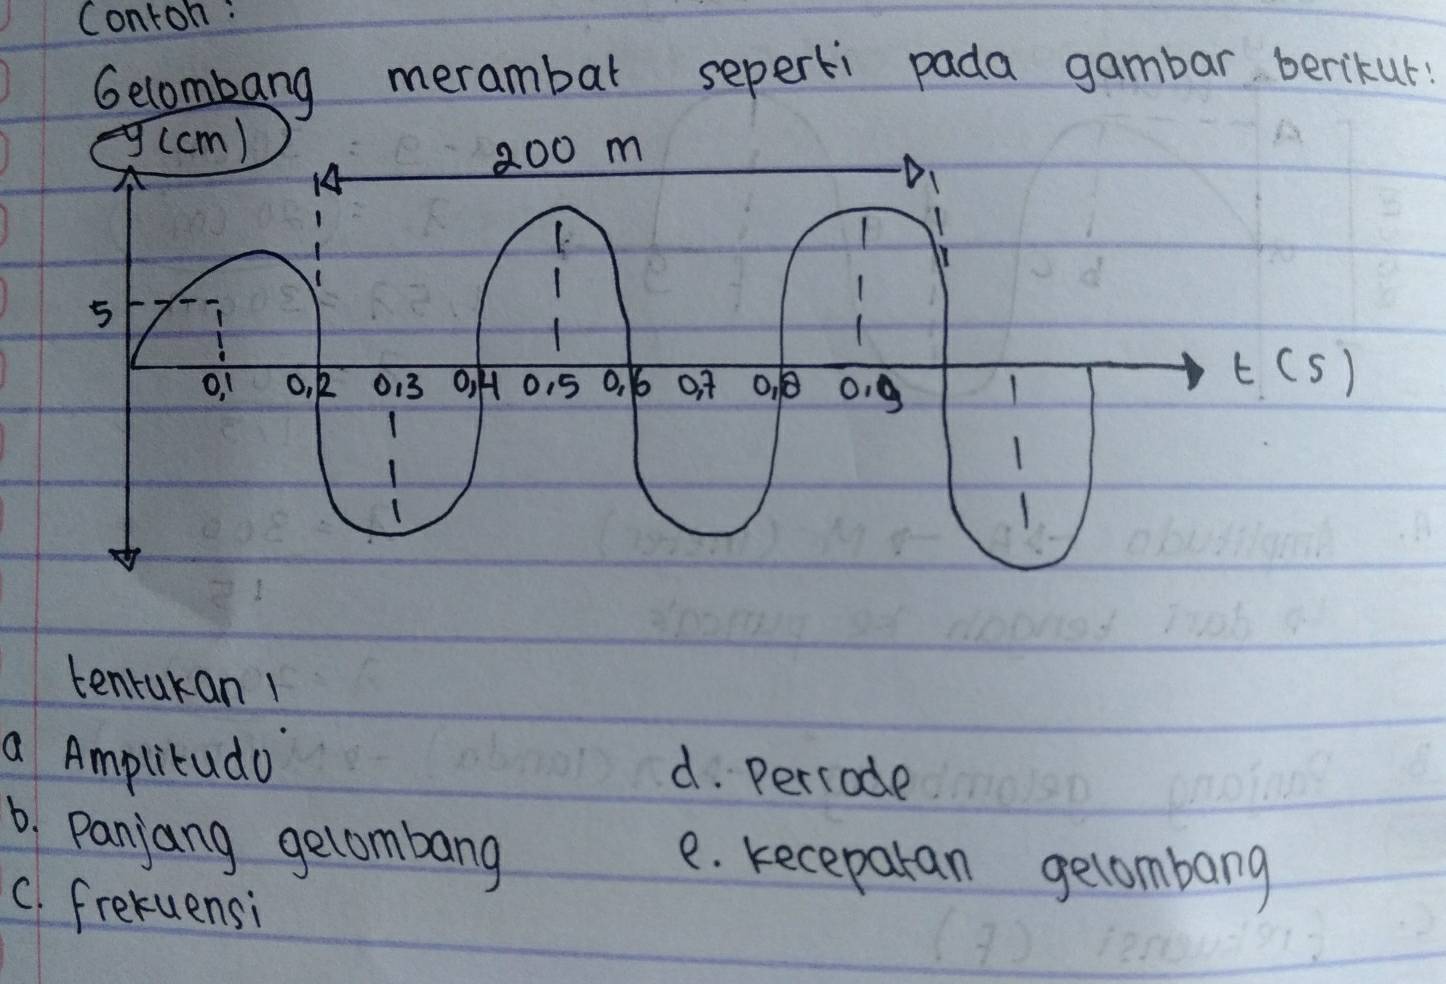 Contoh :
Gelombang merambat seperti pada gambar berikut:
y (cm)
200 m
5
0,1 0,2 0,3 0,4 0,5 0,6 0,7 0,8 0,9
t (s)
tentukan !
a Amplitudo d. Perrode
b. Panjang gelombang e. kecepatan gelombang
c. frekuensi